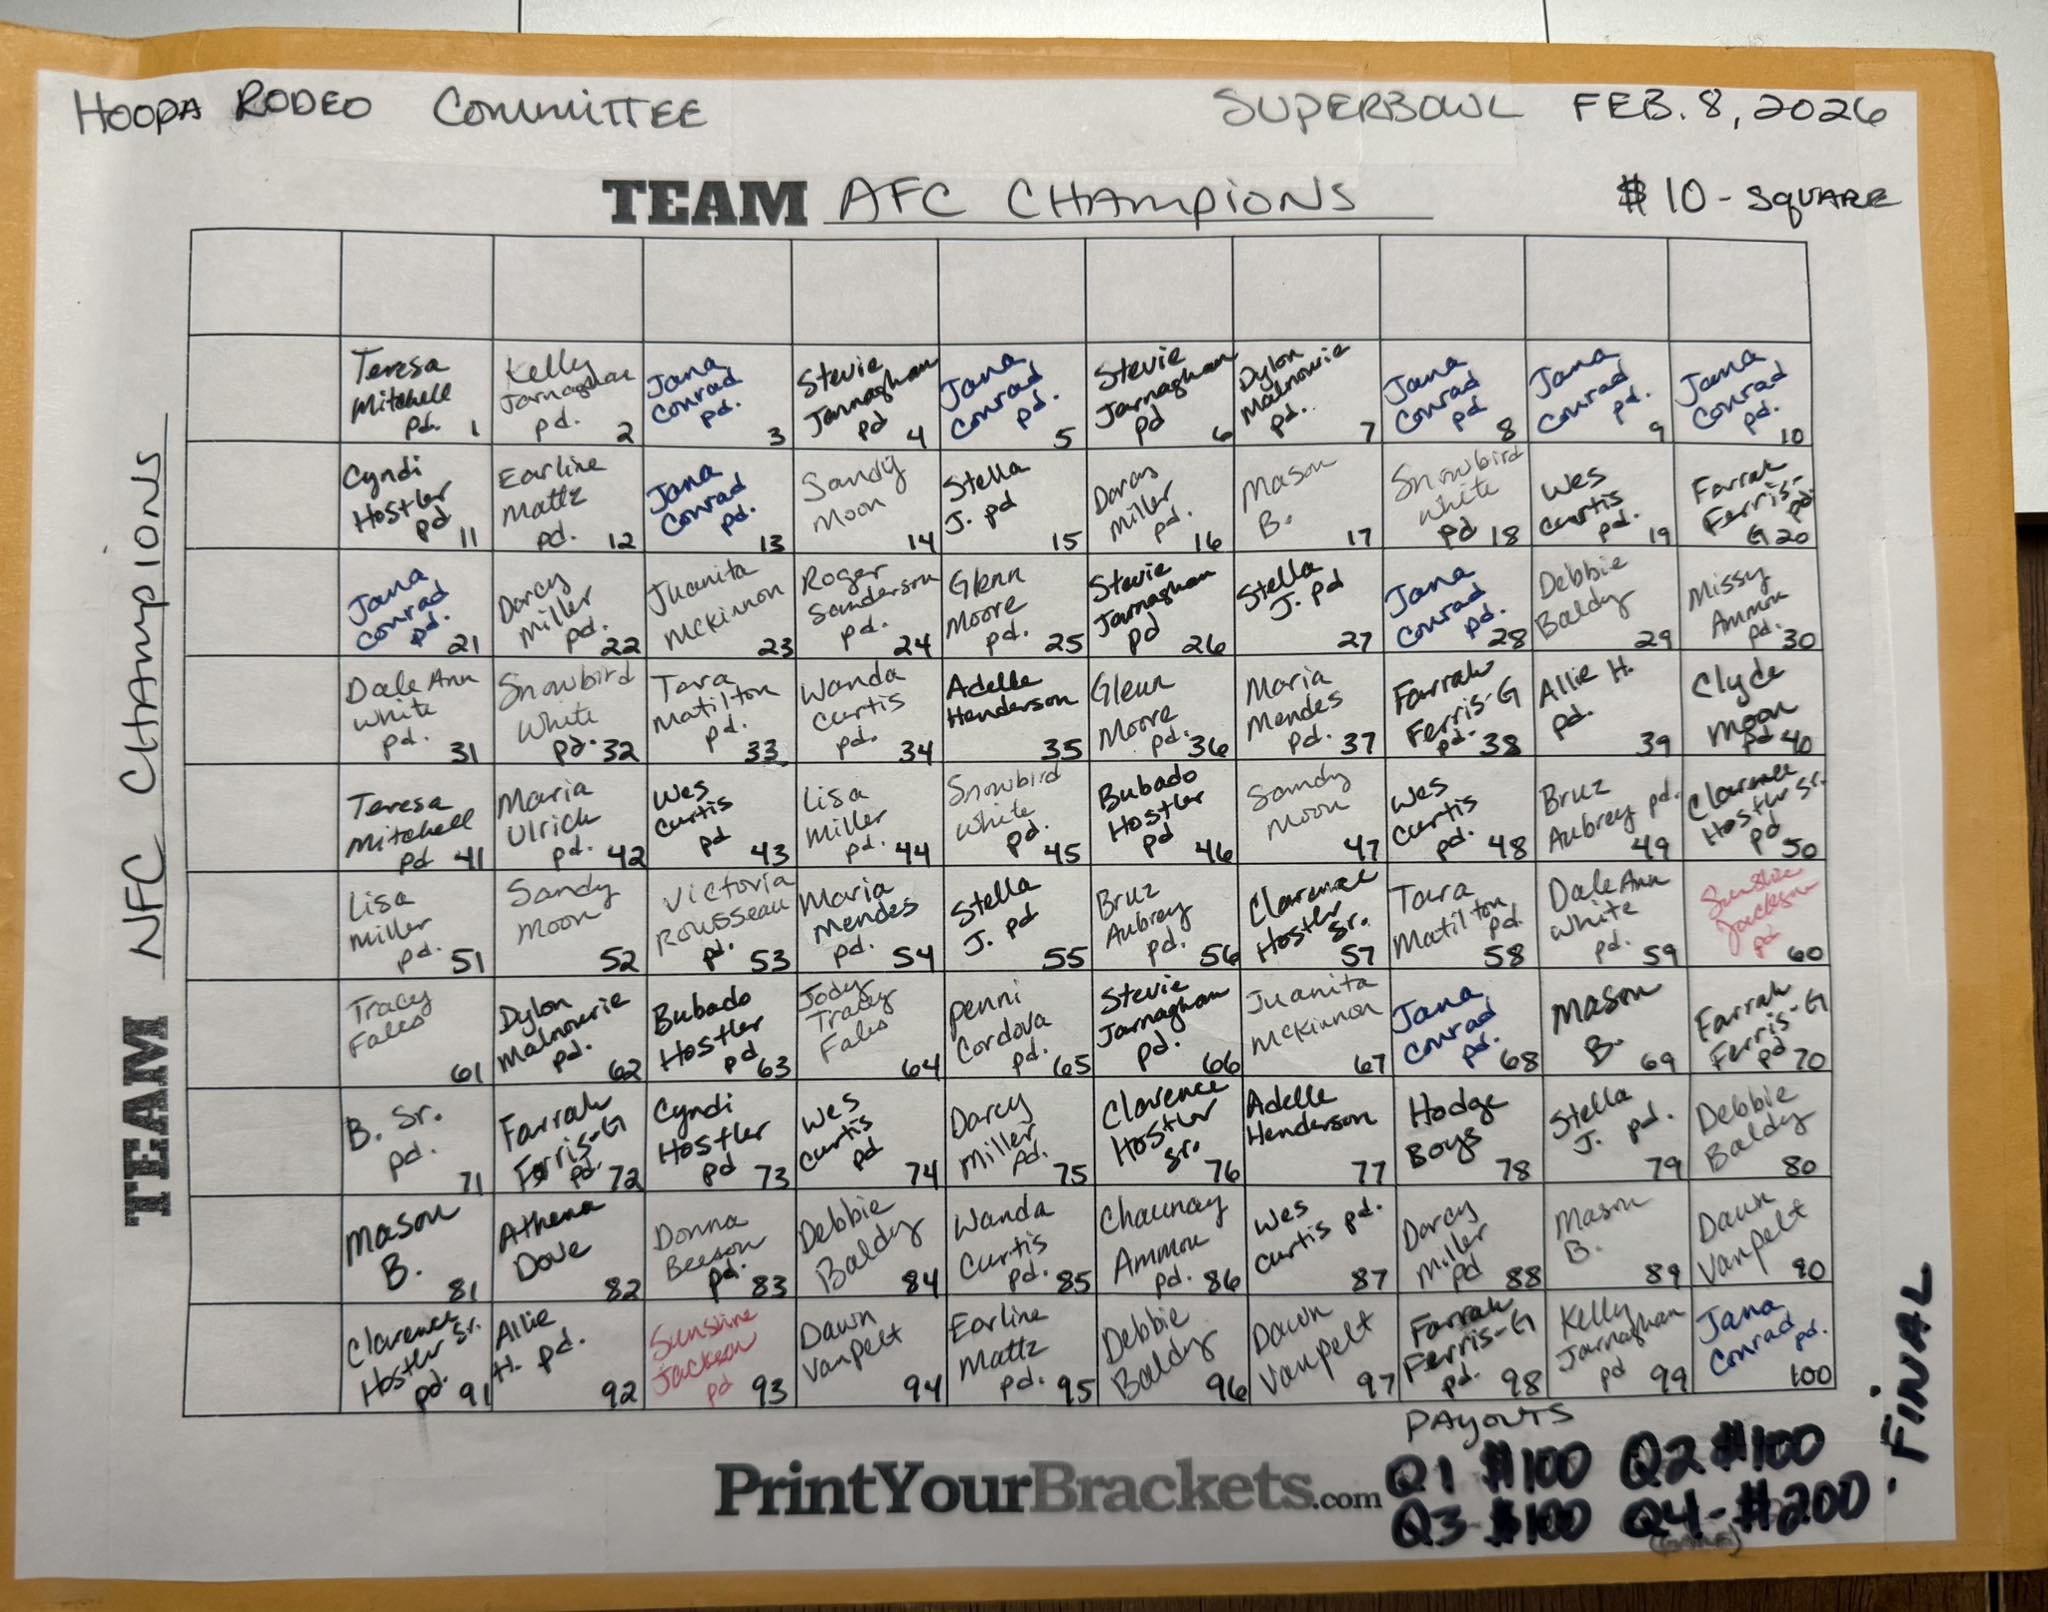 HOOPA RODEO COMMITTEE
SUPERBOWL FEB. 8, 2026
TEAM AFC CHAMPIONS
$10 - SQUARE
TEAM NFC CHAMPIONS
Teresa Mitchell pd. 1
Kelly Jarnaghan pd. 2
Jana Conrad pd. 3
Stevie Jarnaghan pd 4
Jana Conrad pd. 5
Stevie Jarnaghan pd 6
Dylon Malnourie pd. 7
Jana Conrad pd 8
Jana Conrad pd. 9
Jana Conrad pd. 10
Cyndi Hostler pd 11
Earline Mattz pd. 12
Jana Conrad pd. 13
Sandy Moon 14
Stella J. pd 15
Darcy Miller pd. 16
Mason B. 17
Snowbird White pd 18
Wes Curtis pd. 19
Farrah Ferris-G pd. 20
Jana Conrad pd. 21
Darcy Miller pd. 22
Juanita McKinnon 23
Roger Sanderson pd. 24
Glenn Moore pd. 25
Stevie Jarnaghan pd 26
Stella J. pd 27
Jana Conrad pd. 28
Debbie Baldy 29
Missy Ammon pd. 30
Dale Ann White pd. 31
Snowbird White pd. 32
Tara Matilton pd. 33
Wanda Curtis pd. 34
Adelle Henderson 35
Glenn Moore pd. 36
Maria Mendes pd. 37
Farrah Ferris-G pd. 38
Allie H. pd. 39
Clyde Moon pd 40
Teresa Mitchell pd 41
Maria Ulrich pd. 42
Wes Curtis pd 43
Lisa Miller pd. 44
Snowbird White pd. 45
Bubado Hostler pd 46
Sandy Moon 47
Wes Curtis pd. 48
Bruz Aubrey pd. 49
Clarence Hostler Sr. pd 50
Lisa Miller pd. 51
Sandy Moon 52
Victoria Rousseau pd. 53
Maria Mendes pd. 54
Stella J. pd 55
Bruz Aubrey pd. 56
Clarence Hostler Sr. 57
Tara Matilton pd. 58
Dale Ann White pd. 59
Sunshine Jackson pd 60
Tracy Fales 61
Dylon Malnourie pd. 62
Bubado Hostler pd 63
Jody Tracy Fales 64
Penni Cordova pd. 65
Stevie Jarnaghan pd. 66
Juanita McKinnon 67
Jana Conrad pd. 68
Mason B. 69
Farrah Ferris-G pd 70
B. Sr. pd. 71
Farrah Ferris-G pd. 72
Cyndi Hostler pd 73
Wes Curtis pd 74
Darcy Miller pd. 75
Clarence Hostler Sr. 76
Adelle Henderson 77
Hodge Boys 78
Stella J. pd. 79
Debbie Baldy 80
Mason B. 81
Athena Dove 82
Donna Beeson pd. 83
Debbie Baldy 84
Wanda Curtis pd. 85
Chaunay Ammon pd. 86
Wes Curtis pd. 87
Darcy Miller pd 88
Mason B. 89
Dawn Vanpelt 90
Clarence Hostler Sr. pd. 91
Allie H. pd. 92
Sunshine Jackson pd 93
Dawn Vanpelt 94
Earline Mattz pd. 95
Debbie Baldy 96
Dawn Vanpelt 97
Farrah Ferris-G pd. 98
Kelly Jarnaghan pd 99
Jana Conrad pd. 100
PAYOUTS
Q1 $100 Q2 $100
Q3 - $100 Q4 - $200 · FINAL
PrintYourBrackets.com